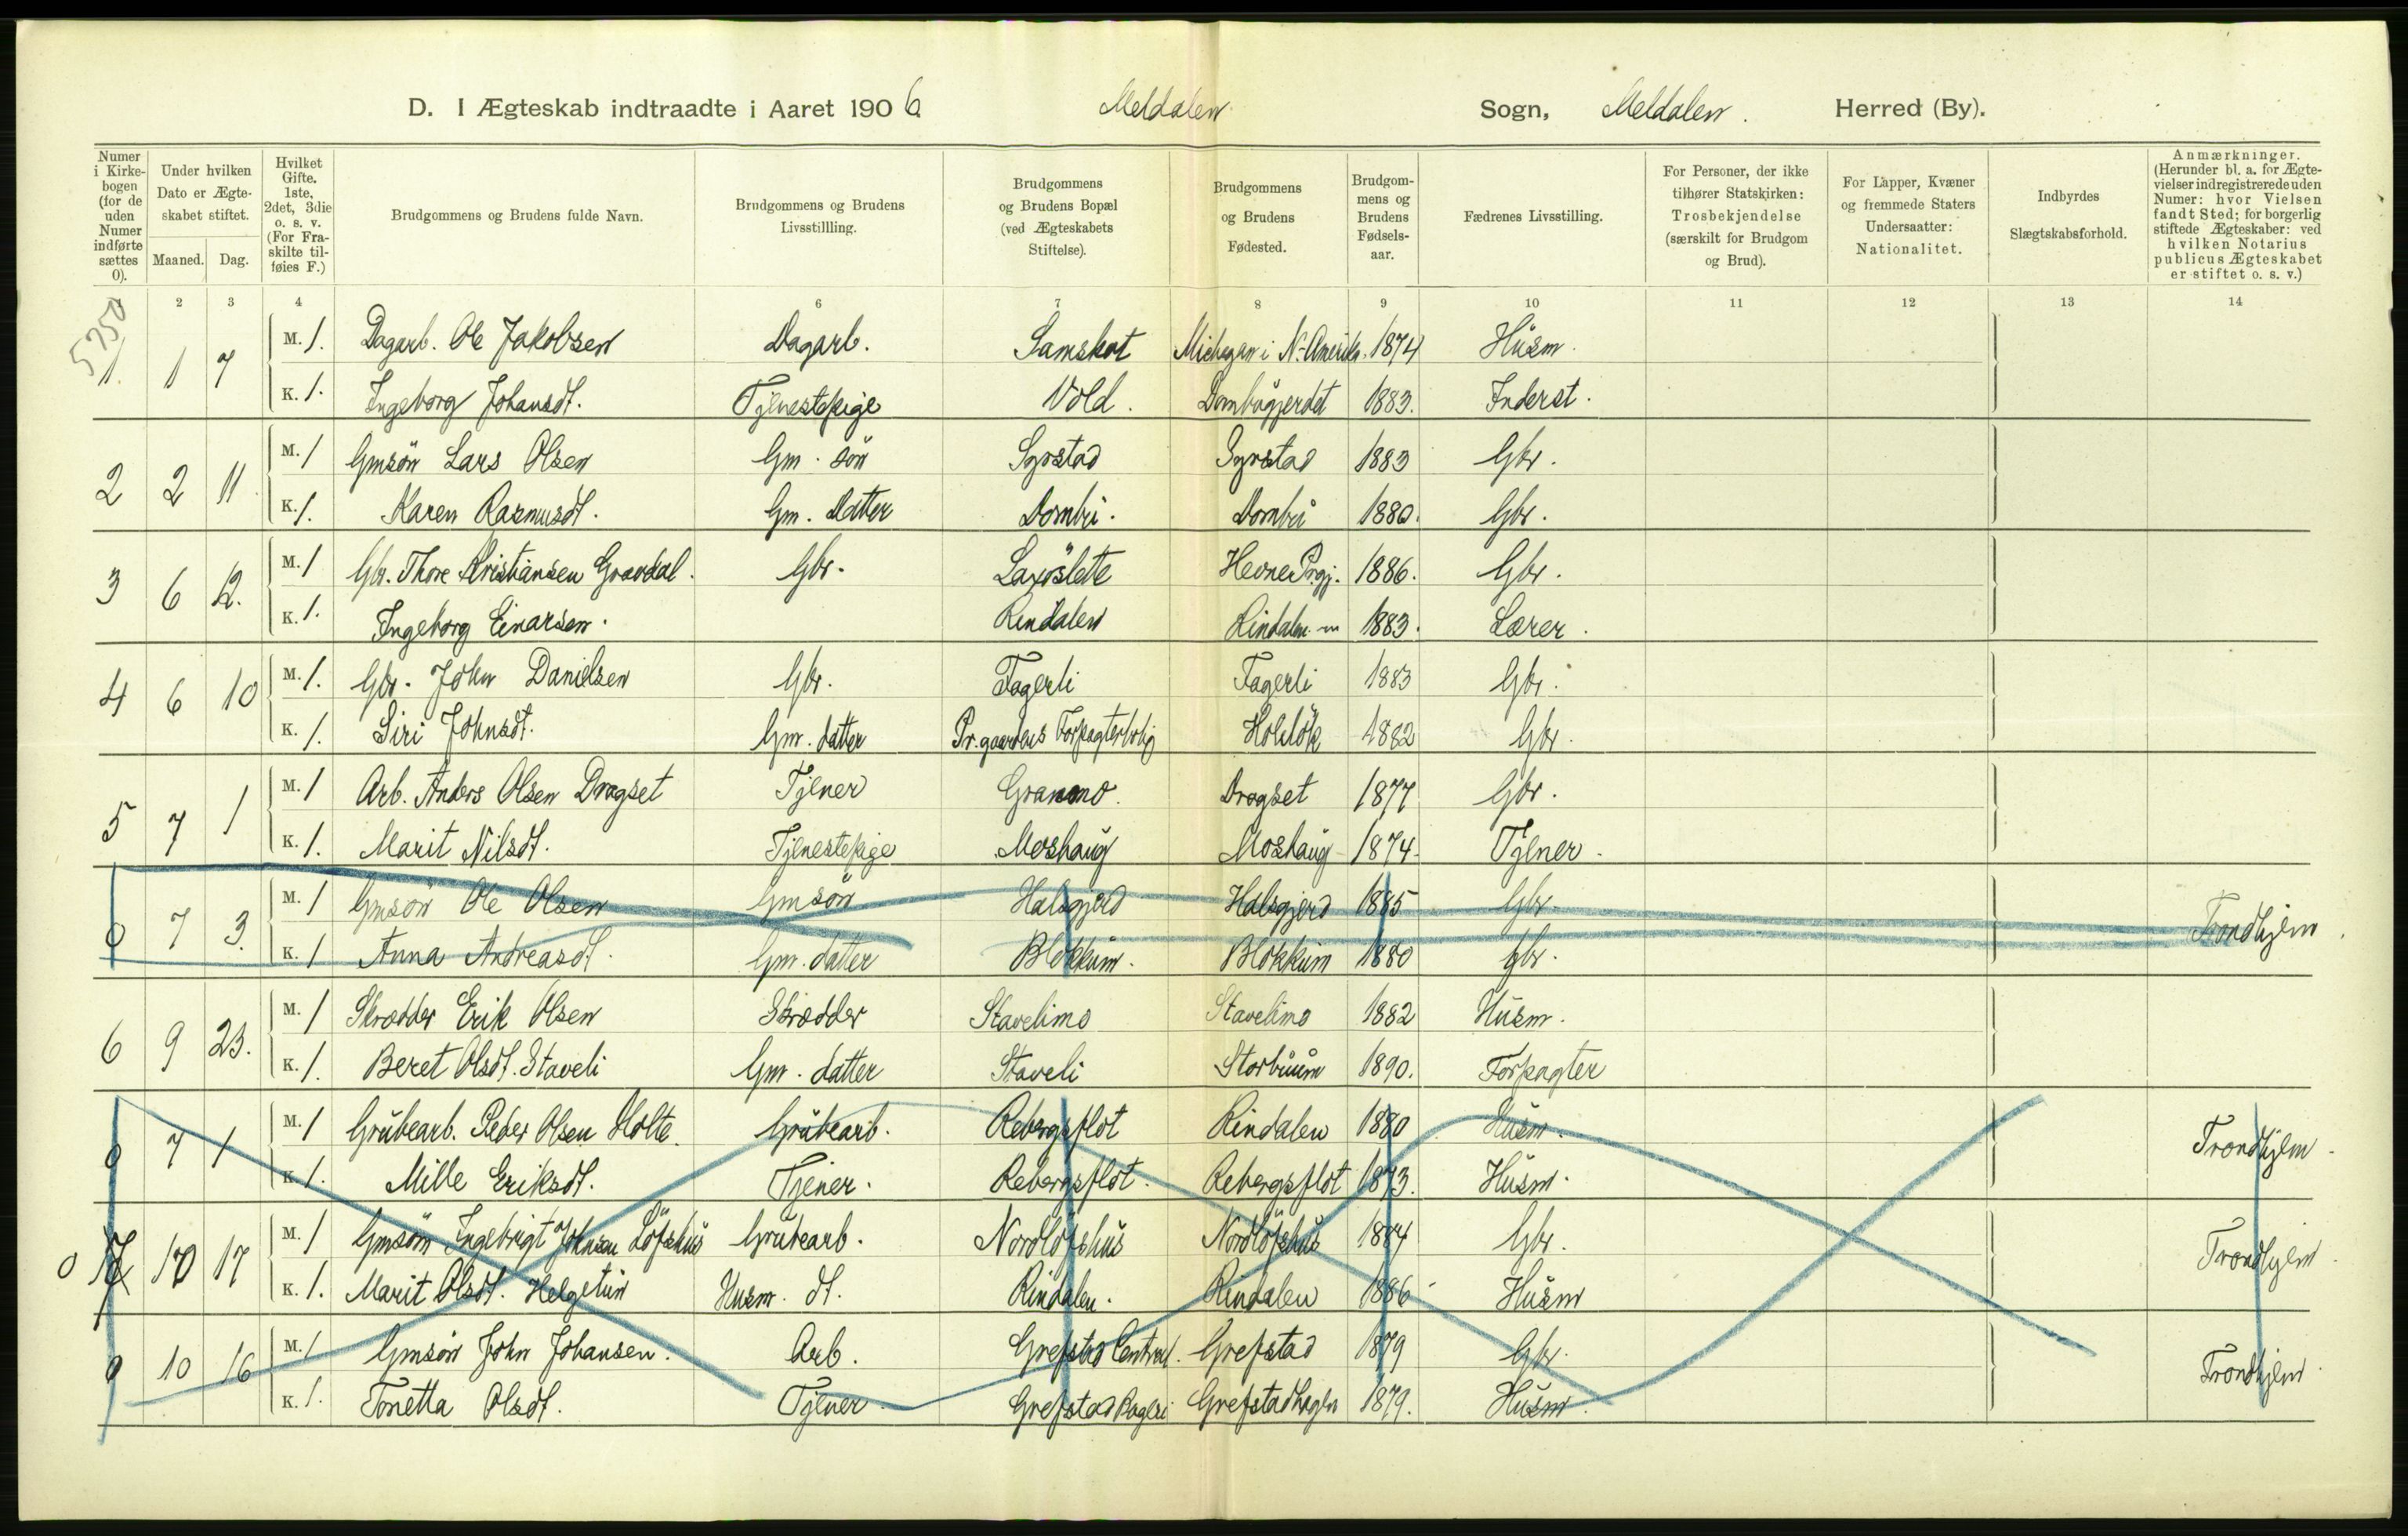 D. I Ægteskab indtraadte i Aaret 1906 Meldalen Sogn, Meldalen. Herred (By).
Numer i Kirkebogen (for de uden Numer indførte sættes 0).
Under hvilken Dato er Ægteskabet stiftet.
Maaned. Dag.
Hvilket Gifte. 1ste, 2det, 3die o. s. v. (For Fraskilte tilføies F.)
Brudgommens og Brudens fulde Navn.
Brudgommens og Brudens Livsstillling.
Brudgommens og Brudens Bopæl (ved Ægteskabets Stiftelse).
Brudgommens og Brudens Fødested.
Brudgommens og Brudens Fødselsaar.
Fædrenes Livsstilling.
For Personer, der ikke tilhører Statskirken: Trosbekjendelse (særskilt for Brudgom og Brud).
For Lapper, Kvæner og fremmede Staters Undersaatter: Nationalitet.
Indbyrdes Slægtskabsforhold.
Anmærkninger. (Herunder bl. a. for Ægtevielser indregistrerede uden Numer: hvor Vielsen fandt Sted; for borgerlig stiftede Ægteskaber: ved hvilken Notarius publicus Ægteskabet er stiftet o. s. v.)
2 3 4 6 7 8 9 10 11 12 13 14
5750
1. 1 7 M. 1. Dagarb. Ole Jakobsen Dagarb. Samskot Michegan i N-Amerika. 1874 Husm.
K. 1. Ingeborg Johansdt. Tjenestepige Vold. Dombugjerdet 1883. Inderst.
2 2 11. M. 1 Gmsön Lars Olsen Gm. sön Syrstad Syrstad 1883 Gbr.
K. 1. Karen Rasmusdt. Gm. Datter Dombu. Dombu 1880. Gbr.
3 6 12. M. 1 Gbr. Thore Kristiansen Gravdal. Gbr. Laxöslette Hevne Prgj. 1886. Gbr.
K. 1. Ingeborg Einarsen. Rindalen Rindalen 1883. Lærer.
4 6 10 M. 1. Gbr. John Danielsen Gbr. Fagerli Fagerli 1883 Gbr.
K. 1. Siri Johnsdt. Gm. datter Pr.gaardens Forpagterbolig 1882 Gbr.
5 7 1 M. 1 Arb. Anders Olsen Dragset Tjener Granmo. Dragset 1877 Gbr.
K. 1. Marit Nilsdt. Tjenestepige Moshaug Moshaug 1874. Tjener.
0 7 3. M. 1 Gmsön Ole Olsen Gmsön Halsgjerd Halsgjerd 1885 Gbr. Trondhjem.
K. 1 Anna Andreasdt. Gm. datter Blokkum. Blokkum 1880 Gbr.
6 9 23. M. 1 Skrædder Erik Olsen Skrædder Stavelimo Stavelimo 1882 Husm.
K. 1. Beret Olsdt. Staveli Gm. datter Staveli 1890. Forpagter
0 7 1 M. 1 Grubearb. Peder Olsen Holte. Grubearb. Rebergsflot Rindalen 1880 Husm. Trondhjem.
K. 1. Mille Eriksdt. Tjener. Rebergsflot. Rebergsflot 1873. Husm.
0 10 17 M. 1 Gmsön Ingebrigt Johnsen Löfshus Grubearb. Nordlöfshus Nordlöfshus 1884 Gbr. Trondhjem.
K. 1. Marit Olsdt. Helgetun Husm. dt. Rindalen. Rindalen 1886 Husm
0 10 16 M. 1 Gmsön John Johansen. Arb. Grefstad Central. Grefstad 1879 Gbr. Trondhjem.
K. 1. Tonetta Olsdt. Tjener. Grefstad Grefstadhagen 1879. Husm.